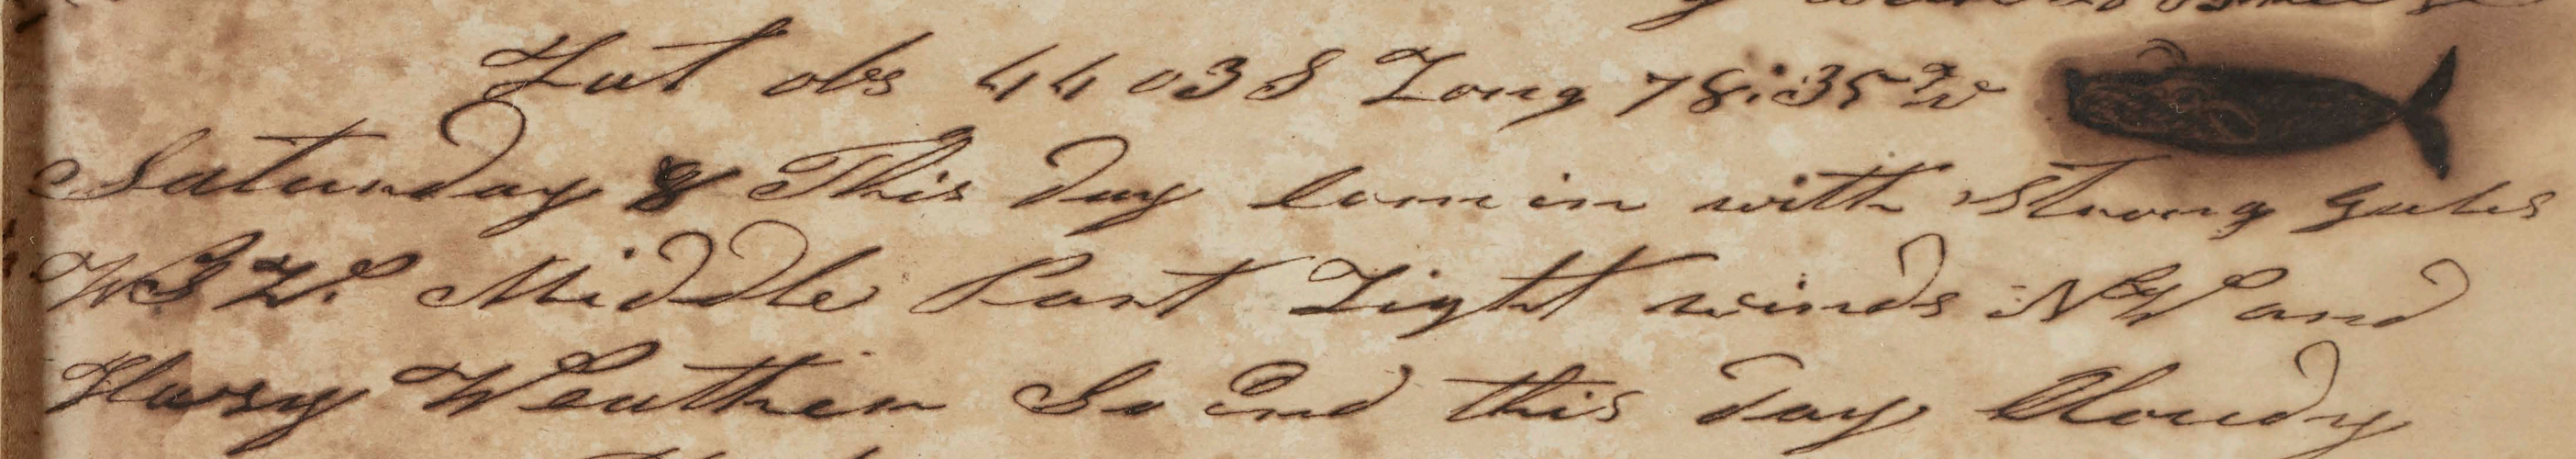 Lat obs 44 03 S Long 78:35 W
Saturday 8 This Day Comin with Strong gales
Middle Part Light winds and
Hazy Weather So End this Day Cloudy